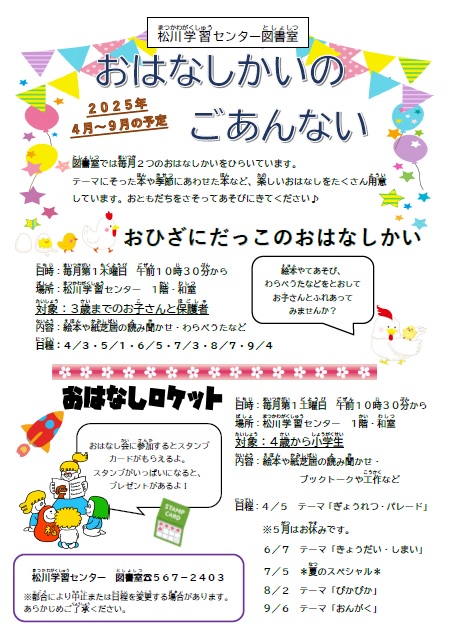 松川学習センター図書室
おはなしかいの
ごあんない
2025年
4月～9月の予定
図書室では毎月2つのおはなしかいをひらいています。
テーマにそった本や季節にあわせた本など、楽しいおはなしをたくさん用意
しています。おともだちをさそってあそびにきてください♪
おひざにだっこのおはなしかい
日時：毎月第1木曜日　午前10時30分から
場所：松川学習センター　1階・和室
対象：3歳までのお子さんと保護者
内容：絵本や紙芝居の読み聞かせ・わらべうたなど
日程：4/3・5/1・6/5・7/3・8/7・9/4
絵本やてあそび、
わらべうたなどをとおして
お子さんとふれあって
みませんか？
おはなしロケット
日時：毎月第1土曜日　午前10時30分から
場所：松川学習センター　1階・和室
対象：4歳から小学生
内容：絵本や紙芝居の読み聞かせ・
ブックトークや工作など
日程：4/5　テーマ「ぎょうれつ・パレード」
※5月はお休みです。
6/7　テーマ「きょうだい・しまい」
7/5　＊夏のスペシャル＊
8/2　テーマ「ぴかぴか」
9/6　テーマ「おんがく」
おはなし会に参加するとスタンプ
カードがもらえるよ。
スタンプがいっぱいになると、
プレゼントがあるよ！
STAMP
CARD
松川学習センター　図書室☎567-2403
※都合により中止または日程を変更する場合があります。
あらかじめご了承ください。